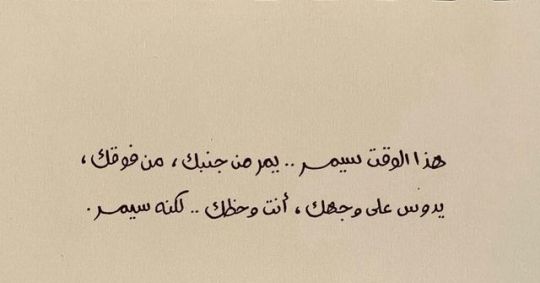 هذا الوقت سيمر .. يمر من جنبك، من فوقك،
يدوس على وجهك، أنت وحظك .. لكنه سيمر.